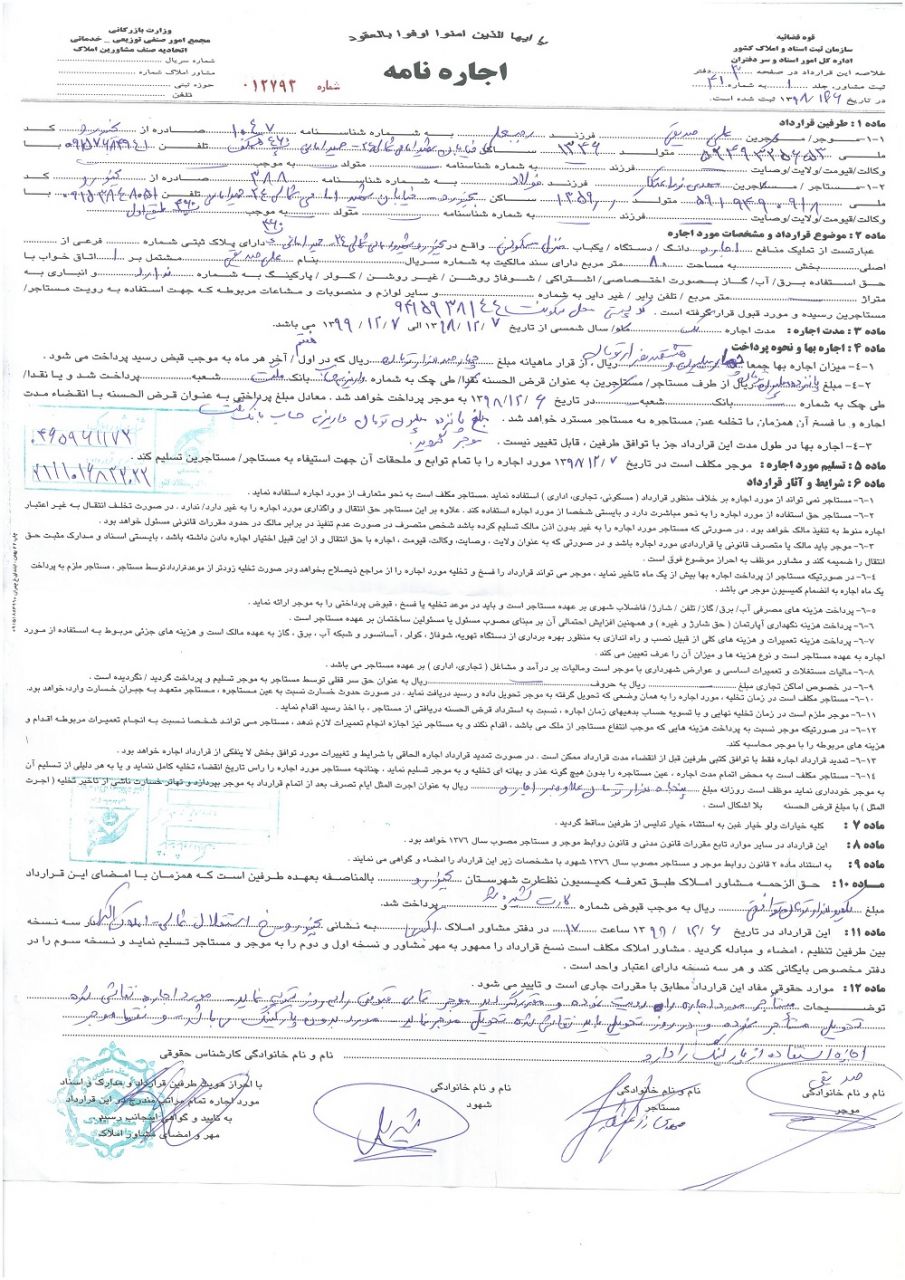 یا ایها الذین امنوا اوفوا بالعقود
قوه قضائیه
سازمان ثبت اسناد و املاک کشور
اداره کل امور اسناد و سر دفتران
خلاصه این قرارداد در صفحه دفتر
ثبت مشاور. جلد ۱ به شماره
در تاریخ ثبت شده است.
اجاره نامه
شماره ۰۱۲۷۹۲
وزارت بازرگانی
مجمع امور صنفی توزیعی _ خدماتی
اتحادیه صنف مشاورین املاک
شماره سریال
مشاور املاک شماره
حوزه ثبتی
تلفن
ماده ۱ : طرفین قرارداد
۱-۱- موجر/ موجرین علی صدیقی فرزند رجبعلی به شماره شناسنامه صادره از کد
ملی متولد ۱۳۴۶ ساکن تلفن با
وکالت/قیومت/ولایت/وصایت فرزند به شماره شناسنامه متولد به موجب
۱-۲- مستاجر / مستاجرین مهدی فرزند فولاد به شماره شناسنامه ۳۸۸ صادره از کد
ملی متولد ۱۳۵۹ ساکن تلفن با
وکالت/قیومت/ولایت/وصایت فرزند به شماره شناسنامه متولد به موجب
ماده ۲ : موضوع قرارداد و مشخصات مورد اجاره
عبارتست از تملیک منافع اجاره دانگ / دستگاه / یکباب منزل مسکونی واقع در دارای پلاک ثبتی شماره فرعی از
اصلی بخش به مساحت ۸۰ متر مربع دارای سند مالکیت به شماره سریال بنام علی صدیقی مشتمل بر ۱ اتاق خواب با
حق استفاده برق/ آب/ گاز بصورت اختصاصی/ اشتراکی / شوفاژ روشن / غیر روشن / کولر / پارکینگ به شماره و انباری به
متراژ متر مربع / تلفن دایر / غیر دایر به شماره و سایر لوازم و منصوبات و مشاعات مربوطه که جهت استفاده به رویت مستاجر/
مستاجرین رسیده و مورد قبول قرار گرفته است . کد پستی محل سکونت
ماده ۳ : مدت اجاره : مدت اجاره یک ماه/ سال شمسی از تاریخ ۱۳۹۸/۱۲/۷ الی ۱۳۹۹/۱۲/۷ می باشد.
ماده ۴ : اجاره بها و نحوه پرداخت
۴-۱- میزان اجاره بها جمعا ریال، از قرار ماهیانه مبلغ چهارصد هزار تومان ریال که در اول / آخر هر ماه به موجب قبض رسید پرداخت می شود .
۴-۲- مبلغ پانزده میلیون ریال از طرف مستاجر/ مستاجرین به عنوان قرض الحسنه نقدا/ طی چک به شماره بانک ملت شعبه پرداخت شد و یا نقدا/
طی چک به شماره بانک شعبه در تاریخ ۱۳۹۸/۱۲/۶ به موجر پرداخت خواهد شد. معادل مبلغ پرداختی به عنوان قرض الحسنه با انقضاء مدت
اجاره و یا فسخ آن همزمان با تخلیه عین مستاجره به مستاجر مسترد خواهد شد . مبلغ پانزده میلیون تومان واریزی حساب بانک ملت
۴-۳- اجاره بها در طول مدت این قرارداد جز با توافق طرفین ، قابل تغییر نیست . موجر گردید
ماده ۵ : تسلیم مورد اجاره : موجر مکلف است در تاریخ ۱۳۹۸/۱۲/۷ مورد اجاره را با تمام توابع و ملحقات آن جهت استیفاء به مستاجر/ مستاجرین تسلیم کند .
ماده ۶ : شرایط و آثار قرارداد
۶-۱- مستاجر نمی تواند از مورد اجاره بر خلاف منظور قرارداد ( مسکونی، تجاری، اداری ) استفاده نماید .مستاجر مکلف است به نحو متعارف از مورد اجاره استفاده نماید .
۶-۲- مستاجر حق استفاده از مورد اجاره را به نحو مباشرت دارد و بایستی شخصا از مورد اجاره استفاده کند . علاوه بر این مستاجر حق انتقال و واگذاری مورد اجاره را به غیر دارد/ ندارد . در صورت تخلف انتقال بـه غیـر اعتبـار
اجاره منوط به تنفیذ مالک خواهد بود . در صورتی که مستاجر مورد اجاره را به غیر بدون اذن مالک تسلیم کرده باشد شخص متصرف در صورت عدم تنفیذ در برابر مالک در حدود مقررات قانونی مسئول خواهد بود .
۶-۳- موجر باید مالک یا متصرف قانونی یا قراردادی مورد اجاره باشد و در صورتی که به عنوان ولایت ، وصایت، وکالت، قیومت ، اجاره با حق انتقال و از این قبیل اختیار اجاره دادن داشته باشد، بایستی اسناد و مـدارک مثبـت حـق
انتقال را ضمیمه کند و مشاور موظف به احراز موضوع فوق است .
۶-۴- در صورتیکه مستاجر از پرداخت اجاره بها بیش از یک ماه تاخیر نماید ، موجر می تواند قرارداد را فسخ و تخلیه مورد اجاره را از مراجع ذیصلاح بخواهد ودر صورت تخلیه زودتر از موعدقرارداد توسط مستاجر ، مستاجر ملزم به پرداخت
یک ماه اجاره به انضمام کمیسیون موجر می باشد .
۶-۵- پرداخت هزینه های مصرفی آب/ برق/ گاز/ تلفن / شارژ/ فاضلاب شهری بر عهده مستاجر است و باید در موعد تخلیه یا فسخ ، قبوض پرداختی را به موجر ارائه نماید .
۶-۶- پرداخت هزینه نگهداری آپارتمان ( حق شارژ و غیره ) و همچنین افزایش احتمالی آن بر مبنای مصوب مسئول یا مسئولین ساختمان بر عهده مستاجر است .
۶-۷- پرداخت هزینه تعمیرات و هزینه های کلی از قبیل نصب و راه اندازی به منظور بهره برداری از دستگاه تهویه، شوفاژ، کولر ، آسانسور و شبکه آب ، برق ، گاز به عهده مالک است و هزینه های جزئی مربوط بـه اسـتفاده از مـورد
اجاره به عهده مستاجر است و نوع هزینه ها و میزان آن را عرف تعیین می کند .
۶-۸- مالیات مستغلات و تعمیرات اساسی و عوارض شهرداری با موجر است ومالیات بر درآمد و مشاغل ( تجاری، اداری ) بر عهده مستاجر می باشد .
۶-۹- در خصوص اماکن تجاری مبلغ ریال به حروف ریال به عنوان حق سر قفلی توسط مستاجر به موجر تسلیم و پرداخت گردید / نگردیده است .
۶-۱۰- مستاجر مکلف است در زمان تخلیه ، مورد اجاره را به همان وضعی که تحویل گرفته به موجر تحویل داده و رسید دریافت نماید . در صورت حدوث خسارت نسبت به عین مستاجره ، مستاجر متعهـد بـه جبـران خسـارت وارده خواهد بود.
۶-۱۱- موجر ملزم است در زمان تخلیه نهایی و با تسویه حساب بدهیهای زمان اجاره ، نسبت به استرداد قرض الحسنه دریافتی از مستاجر ، با اخذ رسید اقدام نماید .
۶-۱۲- در صورتیکه موجر نسبت به پرداخت هزینه هایی که موجب انتفاع مستاجر از ملک می باشد ، اقدام نکند و به مستاجر نیز اجازه انجام تعمیرات لازم ندهد ، مستاجر مـی توانـد شخصـا نسـبت بـه انجـام تعمیـرات مربوطـه اقـدام و
هزینه های مربوطه را با موجر محاسبه کند.
۶-۱۳- تمدید قرارداد اجاره فقط با توافق کتبی طرفین قبل از انقضاء مدت قرارداد ممکن است . در صورت تمدید قرارداد اجاره الحاقی با شرایط و تغییرات مورد توافق بخش لا ینفکی از قرارداد اجاره خواهد بود .
۶-۱۴- مستاجر مکلف است به محض اتمام مدت اجاره ، عین مستاجره را بدون هیچ گونه عذر و بهانه ای تخلیه و به موجر تسلیم نماید ، چنانچه مستاجر مورد اجاره را راس تاریخ انقضاء تخلیه کامل ننماید و یا به هر دلیلی از تسلیم آن
به موجر خودداری نماید موظف است روزانه مبلغ پنجاه هزار تومان علاوه بر اجاره ریال به عنوان اجرت المثل ایام تصرف بعد از اتمام قرارداد به موجر بپردازد و تهاتر خسارت ناشی از تاخیر تخلیه ( اجـرت
المثل ) با مبلغ قرض الحسنه بلا اشکال است .
ماده ۷ : کلیه خیارات ولو خیار غبن به استثناء خیار تدلیس از طرفین ساقط گردید .
ماده ۸ : این قرارداد در سایر موارد تابع مقررات قانون مدنی و قانون روابط موجر و مستاجر مصوب سال ۱۳۷۶ خواهد بود .
ماده ۹ : به استناد ماده ۲ قانون روابط موجر و مستاجر مصوب سال ۱۳۷۶ شهود با مشخصات زیر این قرارداد را امضاء و گواهی می نمایند .
مـاده ۱۰: حق الزحمه مشاور املاک طبق تعرفه کمیسیون نظارت شهرستان بالمناصفه بعهده طرفین است که همزمان با امضای این قرارداد
مبلغ ریال به موجب قبوض شماره کارت کشیده و پرداخت شد.
ماده ۱۱: این قرارداد در تاریخ ۱۳۹۸/۱۲/۶ ساعت ۱۷ در دفتر مشاور املاک به نشانی در سه نسخه
بین طرفین تنظیم ، امضاء و مبادله گردید . مشاور املاک مکلف است نسخ قرارداد را ممهور به مهر مشاور و نسخه اول و دوم را به موجر و مستاجر تسلیم نمایـد و نسخه سوم را در
دفتر مخصوص بایگانی کند و هر سه نسخه دارای اعتبار واحد است .
ماده ۱۲: موارد حقوقی مفاد این قرارداد مطابق با مقررات جاری است و تایید می شود .
توضیحات مستاجر مورد اجاره را رویت نموده و موجر تمامی قبوض را به روز
تحویل مستاجر نموده و در روز تحویل باید نقاشی شده تحویل موجر نماید مورد بدون پارکینگ می باشد و فقط موجر
اجازه استفاده از پارکینگ را دارد
صدیقی
نام و نام خانوادگی
موجر
نام و نام خانوادگی
مستاجر
نام و نام خانوادگی
شهود
نام و نام خانوادگی کارشناس حقوقی
با احراز هویت طرفین قرارداد و مدارک و اسناد
مورد اجاره تمام مراتب مندرج در این قرارداد
به تایید و گواهی اینجانب رسید
مهر و امضای مشاور املاک